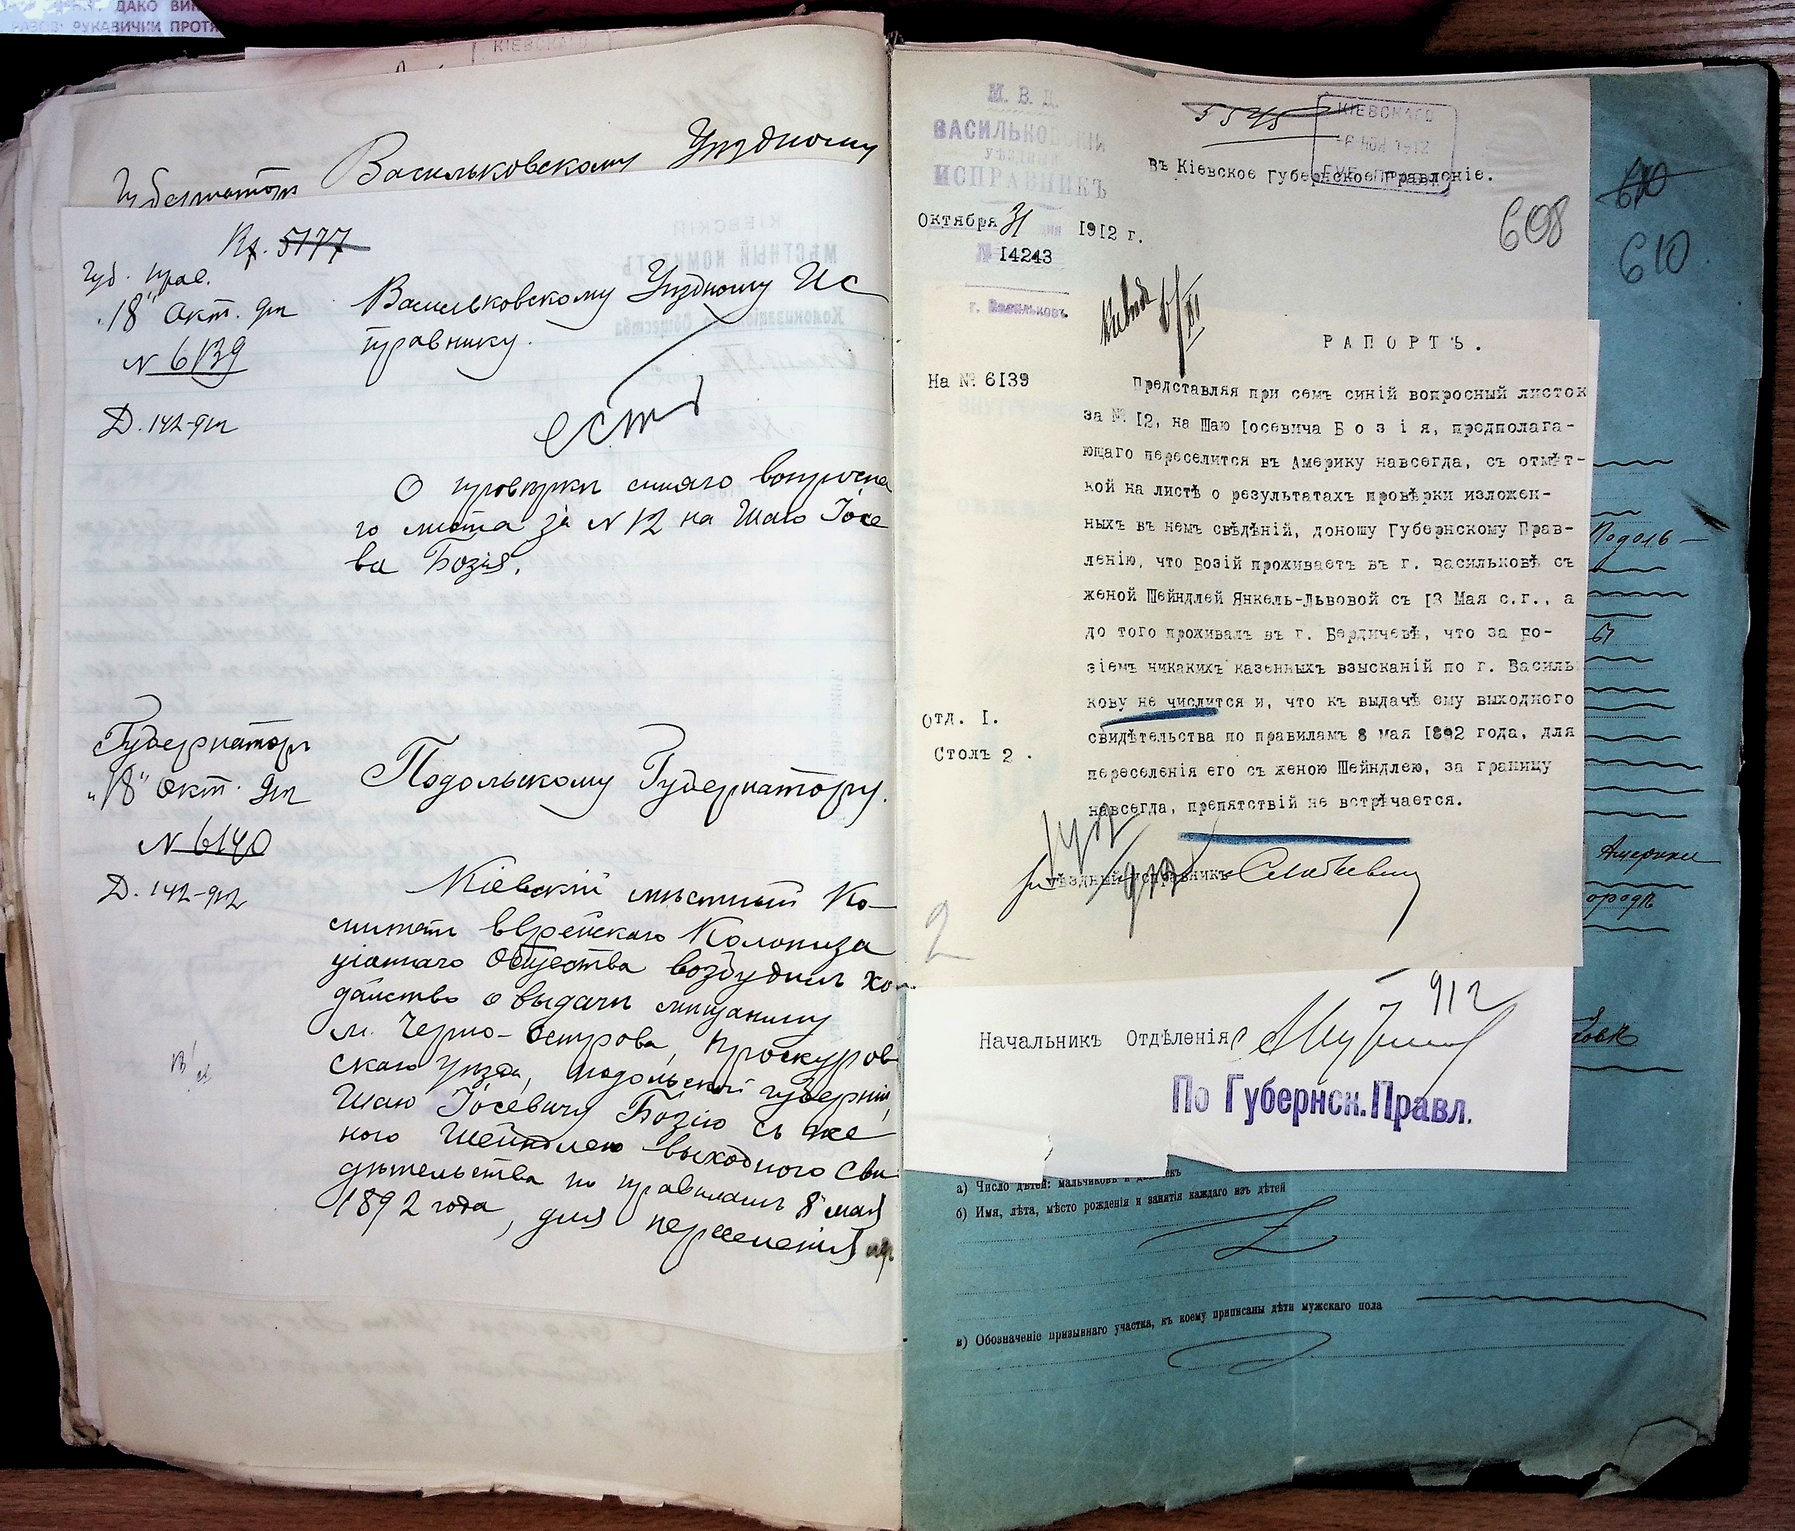 ДАКО
РУКАВИЧКИ ПРОТЯ
КІЕВСКАГО
Губернаторъ
Васильковскому Уѣздному
5177
Губ. Прав.
"18" Окт. 912
N 6139
Д. 142-912
Васильковскому Уѣздному Ис
правнику.
О провѣркѣ синяго вопросна
го листа за N 12 на Шаю Іосе
ва Бозія.
Губернаторъ
"18" Окт. 912
N 6140
Д. 142-912
Подольскому Губернатору.
Кіевскій мѣстный Ко-
митетъ Еврейскаго Колониза
ціоннаго Общества возбудилъ хо
датайство о выдачѣ мѣщанину
м. Черно-Острова, Проскуров
скаго уѣзда, Подольской губерніи,
Шаѣ Іосевичу Бозію съ же
ною Шейндлею выходного сви
дѣтельства по правиламъ 8 мая
1892 года, для переселенія
М. В. Д.
ВАСИЛЬКОВСКІЙ
УѢЗДНЫЙ
ИСПРАВНИКЪ
Октября 31 дня 1912 г.
№ 14243
г. Васильковъ
5545
КІЕВСКАГО
6 НОЯ 1912
Въ Кіевское Губернское Правленіе.
608
610
610
РАПОРТЪ.
На № 6139
Представляя при семъ синій вопросный листокъ
за № 12, на Шаю Іосевича Бозія, предполага-
ющаго переселится въ Америку навсегда, съ отмѣт-
кой на листѣ о результатахъ провѣрки изложен-
ныхъ въ немъ свѣдѣній, доношу Губернскому Прав-
ленію, что Бозій проживаетъ въ г. Васильковѣ съ
женой Шейндлей Янкель-Львовой съ 13 Мая с.г., а
до того проживалъ въ г. Бердичевѣ, что за Бо-
зіемъ никакихъ казенныхъ взысканій по г. Василь
кову не числится и, что къ выдачѣ ему выходного
свидѣтельства по правиламъ 8 мая 1892 года, для
переселенія его съ женою Шейндлею, за границу
навсегда, препятствій не встрѣчается.
Отд. I.
Столъ 2.
Уѣздный исправникъ
2
912
Начальникъ Отдѣленія
По Губернск.Правл.
Подоль-
Америки
городѣ
а) Число дѣтей: мальчиковъ и
б) Имя, лѣта, мѣсто рожденія и занятія каждаго изъ дѣтей
в) Обозначеніе призывнаго участка, къ коему приписаны дѣти мужскаго пола